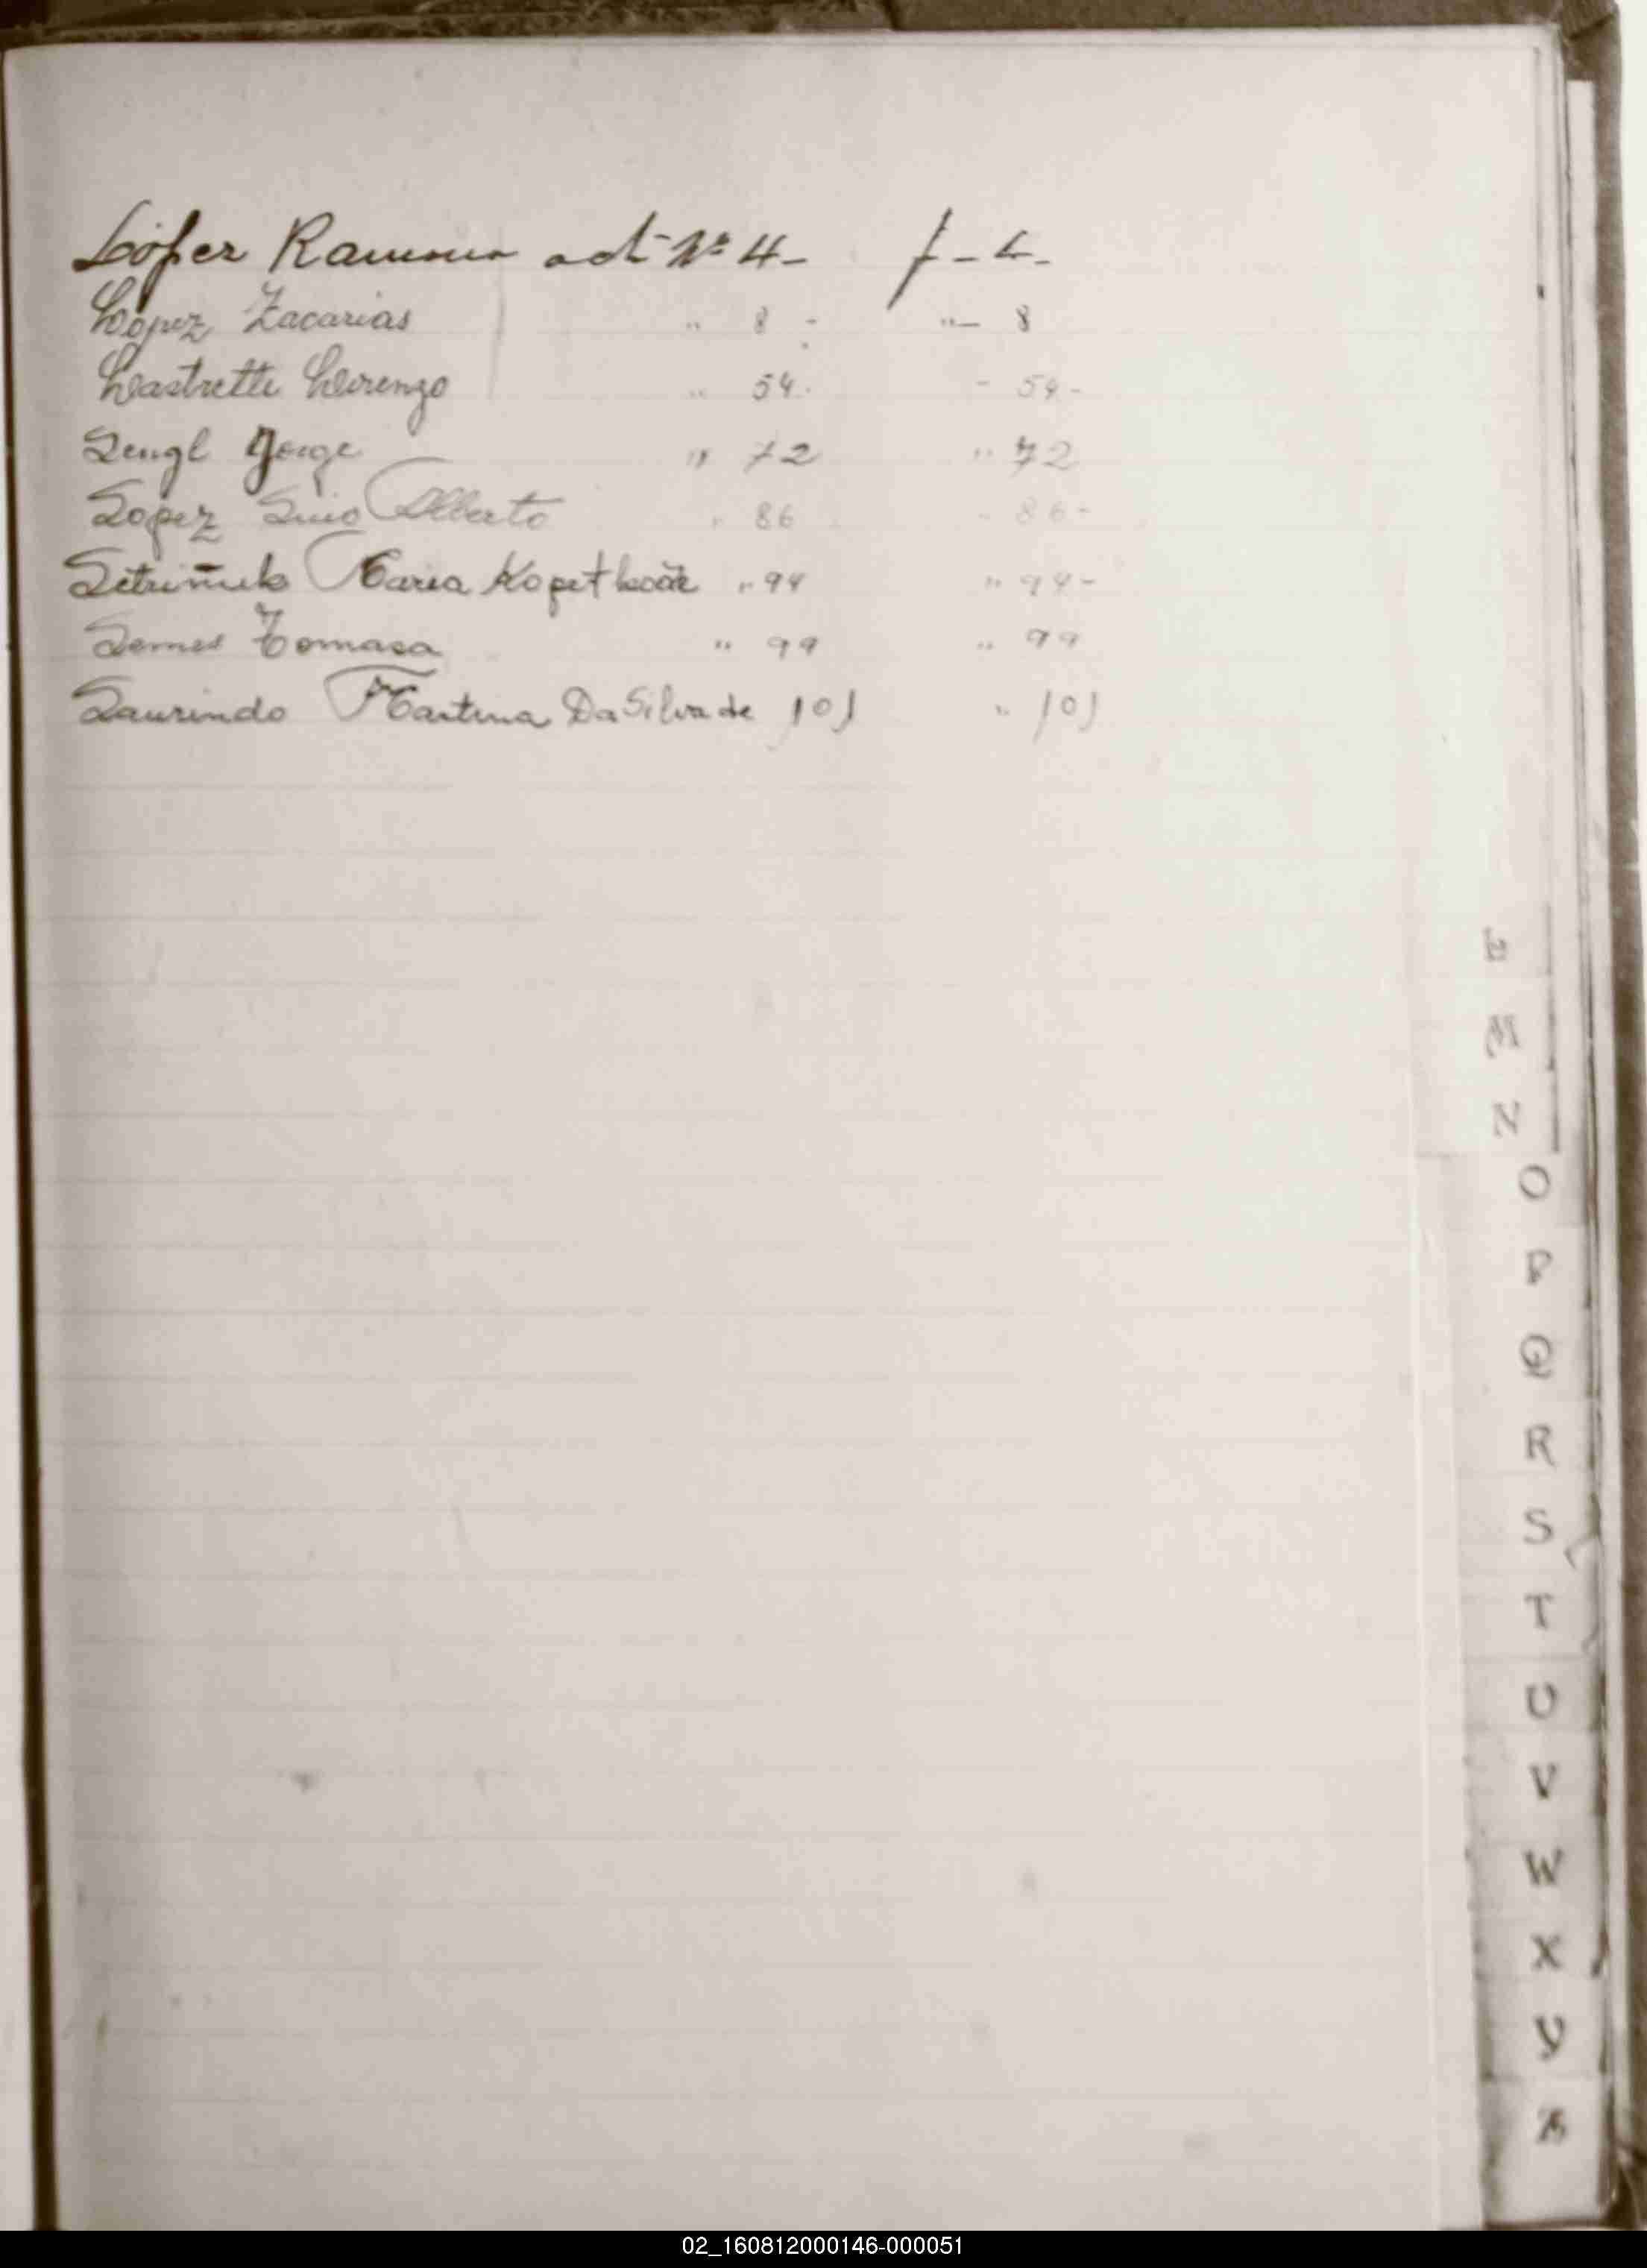 López Ramona act Nº 4- f - 4-
López Zacarias " 8 - "- 8
Lastrette Lorenzo " 54. - 54-
Lengl Jorge " 72 " 72
Lopez Luis Alberto " 86 - 86-
Maria " 94 " 94-
Lemes Tomasa " 99 " 99
Laurindo Martina Da Silva de 101 " 101
L
M
N
O
P
Q
R
S
T
U
V
W
X
Y
Z
02_160812000146-000051